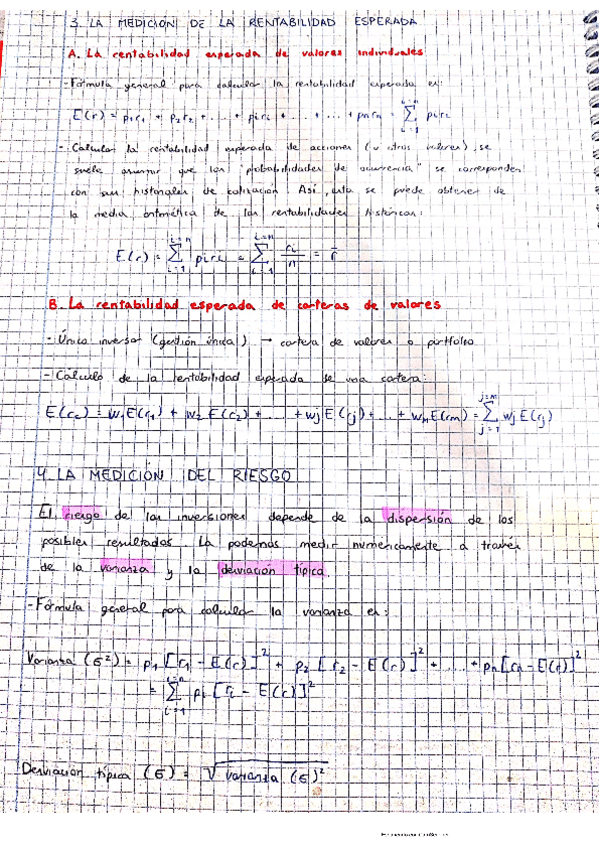 3. LA MEDICIÓN DE LA RENTABILIDAD ESPERADA
A. La rentabilidad esperada de valores individuales
- Fórmula general para calcular la rentabilidad esperada es:
E(r) = p1r1 + p2r2 + ... + piri + ... + ... + pnrn = ∑ i=1 i=n piri
- Calcular la rentabilidad esperada de acciones (u otros valores), se
suele asumir que las "probabilidades de ocurrencia" se corresponden
con sus historiales de cotización. Así, esta se puede obtener de
la media aritmética de las rentabilidades históricas:
E(r) = ∑ i=1 i=n piri = ∑ i=1 i=n ri/n = r̄
B. La rentabilidad esperada de carteras de valores
- Único inversor (gestión única) → cartera de valores o portfolio
- Cálculo de la rentabilidad esperada de una cartera:
E(rc) = w1E(r1) + w2 E(r2) + ... + wj E(rj) + ... + wmE(rm) = ∑ j=1 j=m wj E(rj)
4. LA MEDICIÓN DEL RIESGO
El riesgo de las inversiones depende de la dispersión de los
posibles resultados. La podemos medir numéricamente a través
de la varianza y la desviación típica.
- Fórmula general para calcular la varianza es:
Varianza (σ²) = p1 [r1 - E(r)]² + p2 [r2 - E(r)]² + ... + pn[rn - E(r)]²
= ∑ i=1 i=n pi [ri - E(r)]²
Desviación típica (σ) = √varianza (σ)²